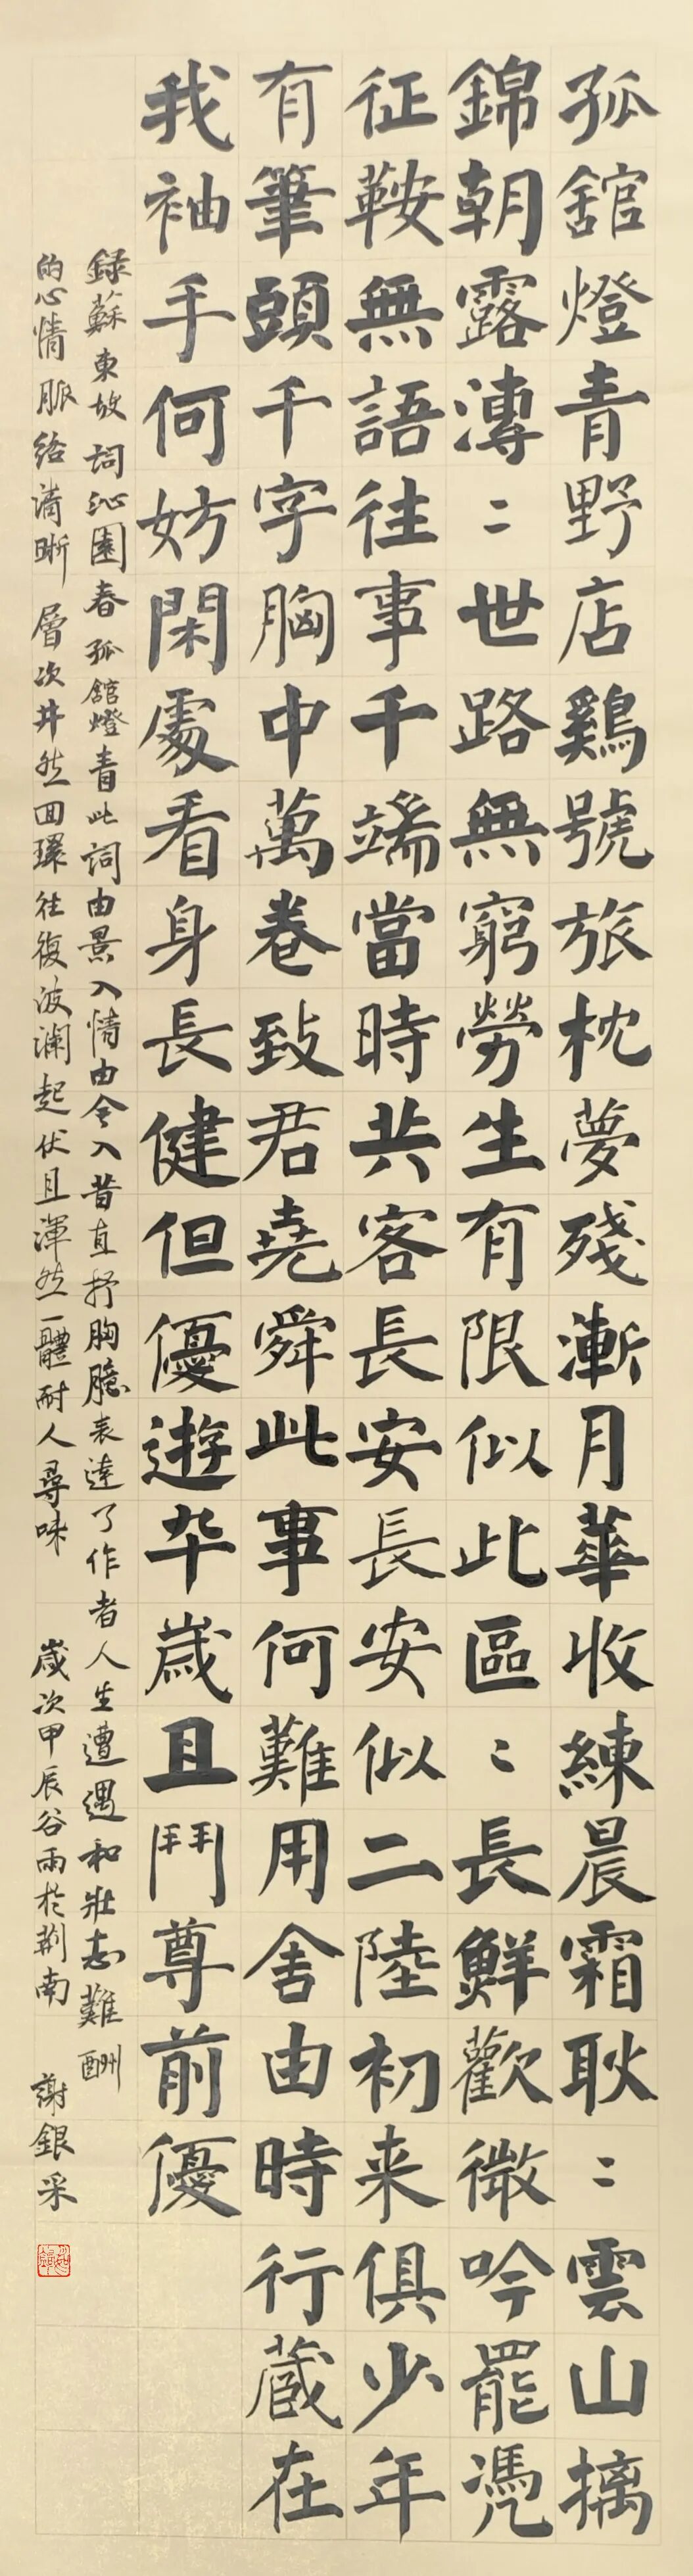 孤舘燈青野店鷄號旅枕夢殘漸月華收練晨霜耿〻雲山摛
錦朝露漙〻世路無窮勞生有限似此區〻長鮮歡微吟罷凭
征鞍無語往事千端當時共客長安長安似二陸初来俱少年
有筆頭千字胸中萬卷致君堯舜此事何難用舍由時行藏在
我袖手何妨閑處看身長健但優遊卒歲且鬥尊前優
録蘇東坡詞沁園春孤舘燈青此詞由景入情由今入昔直抒胸臆表達了作者人生遭遇和壯志難酬
的心情脈絡清晰層次井然回環往復波澜起伏且渾然一體耐人尋味 歲次甲辰谷雨於荆南 謝銀采